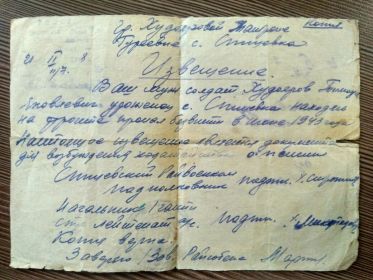 Копия
гр. Худояровой Матрене
Гурьевне с. Спицевка
21 II 8
Извещение
Ваш муж солдат Худояров
Яковлевич уроженец с. Спицевка находясь
на фронте пропал безвести в июне 1943 года
Настоящее извещение является документом
для возбуждения ходатайства о пенсии
Спицевский Райвоенком
подполковник подп.
Начальник 1 части
ст. лейтенант подп.
Копия верна:
Заверил: Зав. Райсобеса